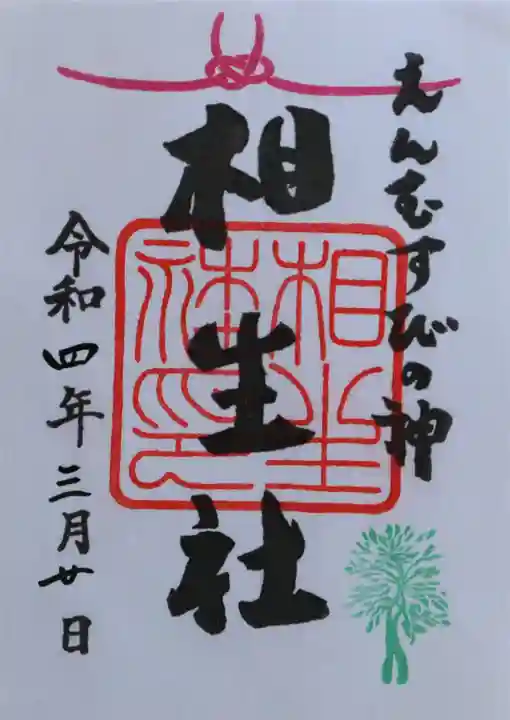 えんむすびの神
相生社
相生社印
令和四年三月廿日